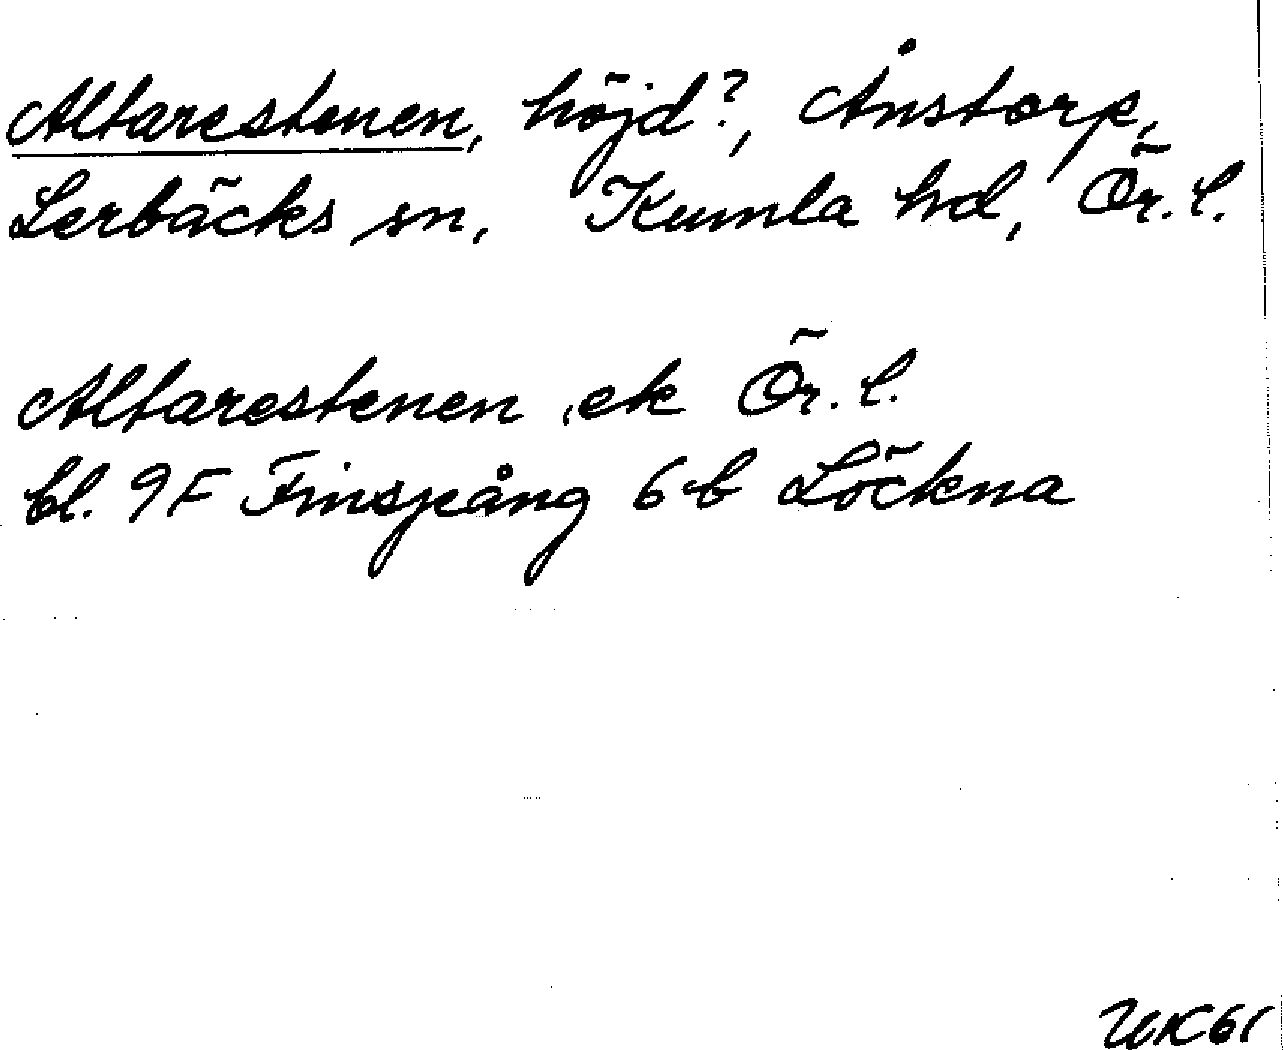 Altarestenen, höjd?, Ånstorp,
Lerbäcks sn, Kumla hd, Ör. l.
Altarestenen, ek Ör. l.
bl. 9F Finspång 6 b Löckna